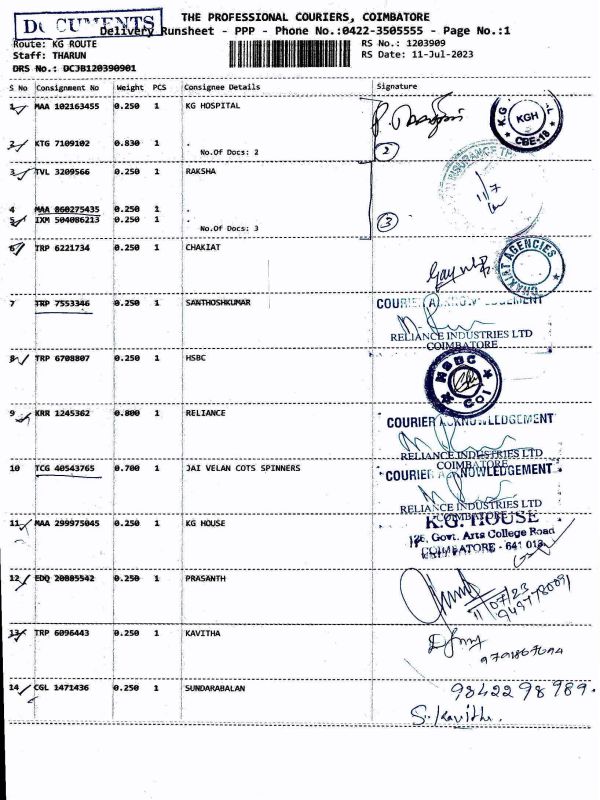 DOCUMENTS
THE PROFESSIONAL COURIERS, COIMBATORE
Delivery Runsheet - PPP - Phone No.:0422-3505555 - Page No.:1
Route: KG ROUTE RS No.: 1203909
Staff: THARUN RS Date: 11-Jul-2023
DRS No.: DCJB120390901
S No Consignment No Weight PCS Consignee Details Signature
1 MAA 102163455 0.250 1 KG HOSPITAL
K.G. KGH CBE-18
2 KTG 7109102 0.830 1 .
No.Of Docs: 2 2
3 TVL 3209566 0.250 1 RAKSHA
INSURANCE
11/7
4 MAA 860275435 0.250 1 .
5 IXM 504086213 0.250 1 .
No.Of Docs: 3 3
6 TRP 6221734 0.250 1 CHAKIAT
CHAKIAT AGENCIES
7 TRP 7553346 0.250 1 SANTHOSHKUMAR
COURIER ACKNOWLEDGEMENT
RELIANCE INDUSTRIES LTD
COIMBATORE
8 TRP 6708807 0.250 1 HSBC
HSBC COI
9 KRR 1245362 0.800 1 RELIANCE
COURIER ACKNOWLEDGEMENT
RELIANCE INDUSTRIES LTD
COIMBATORE
10 TCG 40543765 0.700 1 JAI VELAN COTS SPINNERS
COURIER ACKNOWLEDGEMENT
RELIANCE INDUSTRIES LTD
COIMBATORE
11 MAA 299975045 0.250 1 KG HOUSE
K.G. HOUSE
Govt. Arts College Road
COIMBATORE - 641 018.
12 EDQ 20885542 0.250 1 PRASANTH
11/07/23
13 TRP 6096443 0.250 1 KAVITHA
14 CGL 1471436 0.250 1 SUNDARABALAN
9342298989.
S. Kavitha.